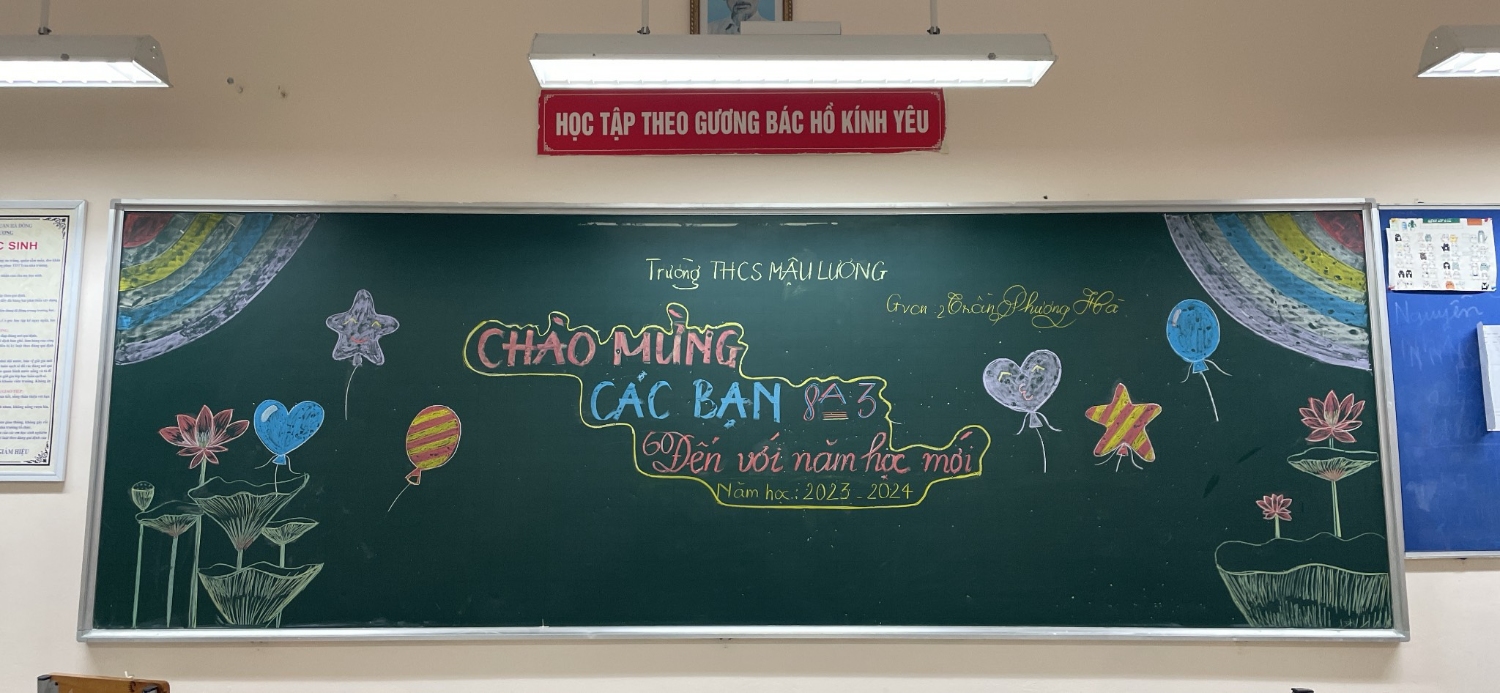 HỌC TẬP THEO GƯƠNG BÁC HỒ KÍNH YÊU
Trường THCS MẬU LƯƠNG
Gvcn : Trần Phương Hà
CHÀO MỪNG
CÁC BẠN 8A3
60 Đến với năm học mới
Năm học : 2023 - 2024
SINH
Nguyễn